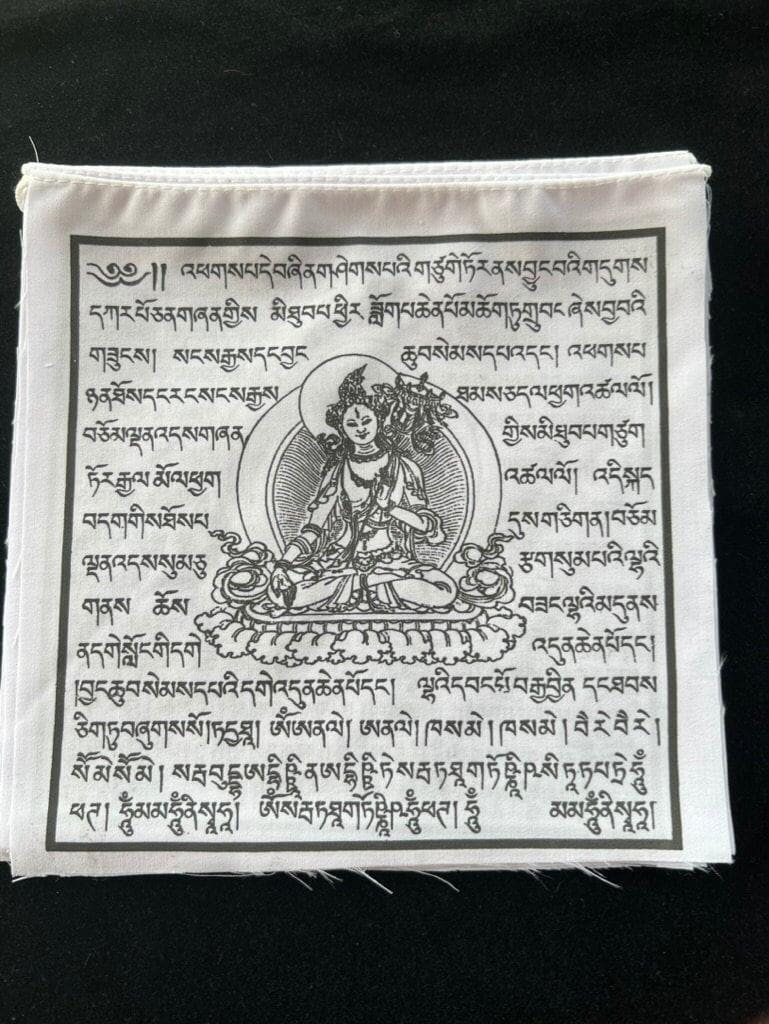 ༄༅།། འཕགས་པ་དེ་བཞིན་གཤེགས་པའི་གཙུག་ཏོར་ནས་བྱུང་བའི་གདུགས
དཀར་པོ་ཅན་གཞན་གྱིས་ མི་ཐུབ་པ་ ཕྱིར་ ཟློག་པ་ཆེན་པོ་མཆོག་ཏུ་གྲུབང་ ཞེས་བྱ་བའི
གཟུངས། སངས་རྒྱས་དང་བྱང ཆུབ་སེམས་དཔའ་དང་། འཕགས་པ
ཉན་ཐོས་དང་རང་སངས་རྒྱས ཐམས་ཅད་ལ་ཕྱག་འཚལ་ལོ།
བཅོམ་ལྡན་འདས་གཞན གྱིས་མི་ཐུབ་པ་གཙུག
ཏོར་རྒྱལ་མོ་ལ་ཕྱག འཚལ་ལོ། འདི་སྐད
བདག་གིས་ཐོས་པ དུས་གཅིག་ན།བཅོམ
ལྡན་འདས་སུམ་ཅུ རྩ་གསུམ་པའི་ལྷའི
གནས ཆོས བཟང་ལྷའི་མདུན་ས
ན་དགེ་སློང་གི་དགེ འདུན་ཆེན་པོ་དང་།
།བྱང་ཆུབ་སེམས་དཔའི་དགེ་འདུན་ཆེན་པོ་དང་། ལྷའི་དབང་པོ་བརྒྱ་བྱིན་ དང་ཐབས
ཅིག་ཏུ་བཞུགས་སོ།ཏདྱ་ཐཱ། ཨོཾ་ཨ་ན་ལེ། ཨ་ན་ལེ། ཁ་ས་མེ། ཁ་ས་མེ། བཻ་རེ་བཻ་རེ།
སོཽ་མེ་སོཽ་མེ།
ཕཊ། ཧཱུྃ་མ་མ་ཧཱུྃ་ནི་སྭཱ་ཧཱ། ཧཱུྃ་ཕཊ། ཧཱུྃ མ་མ་ཧཱུྃ་ནི་སྭཱ་ཧཱ།